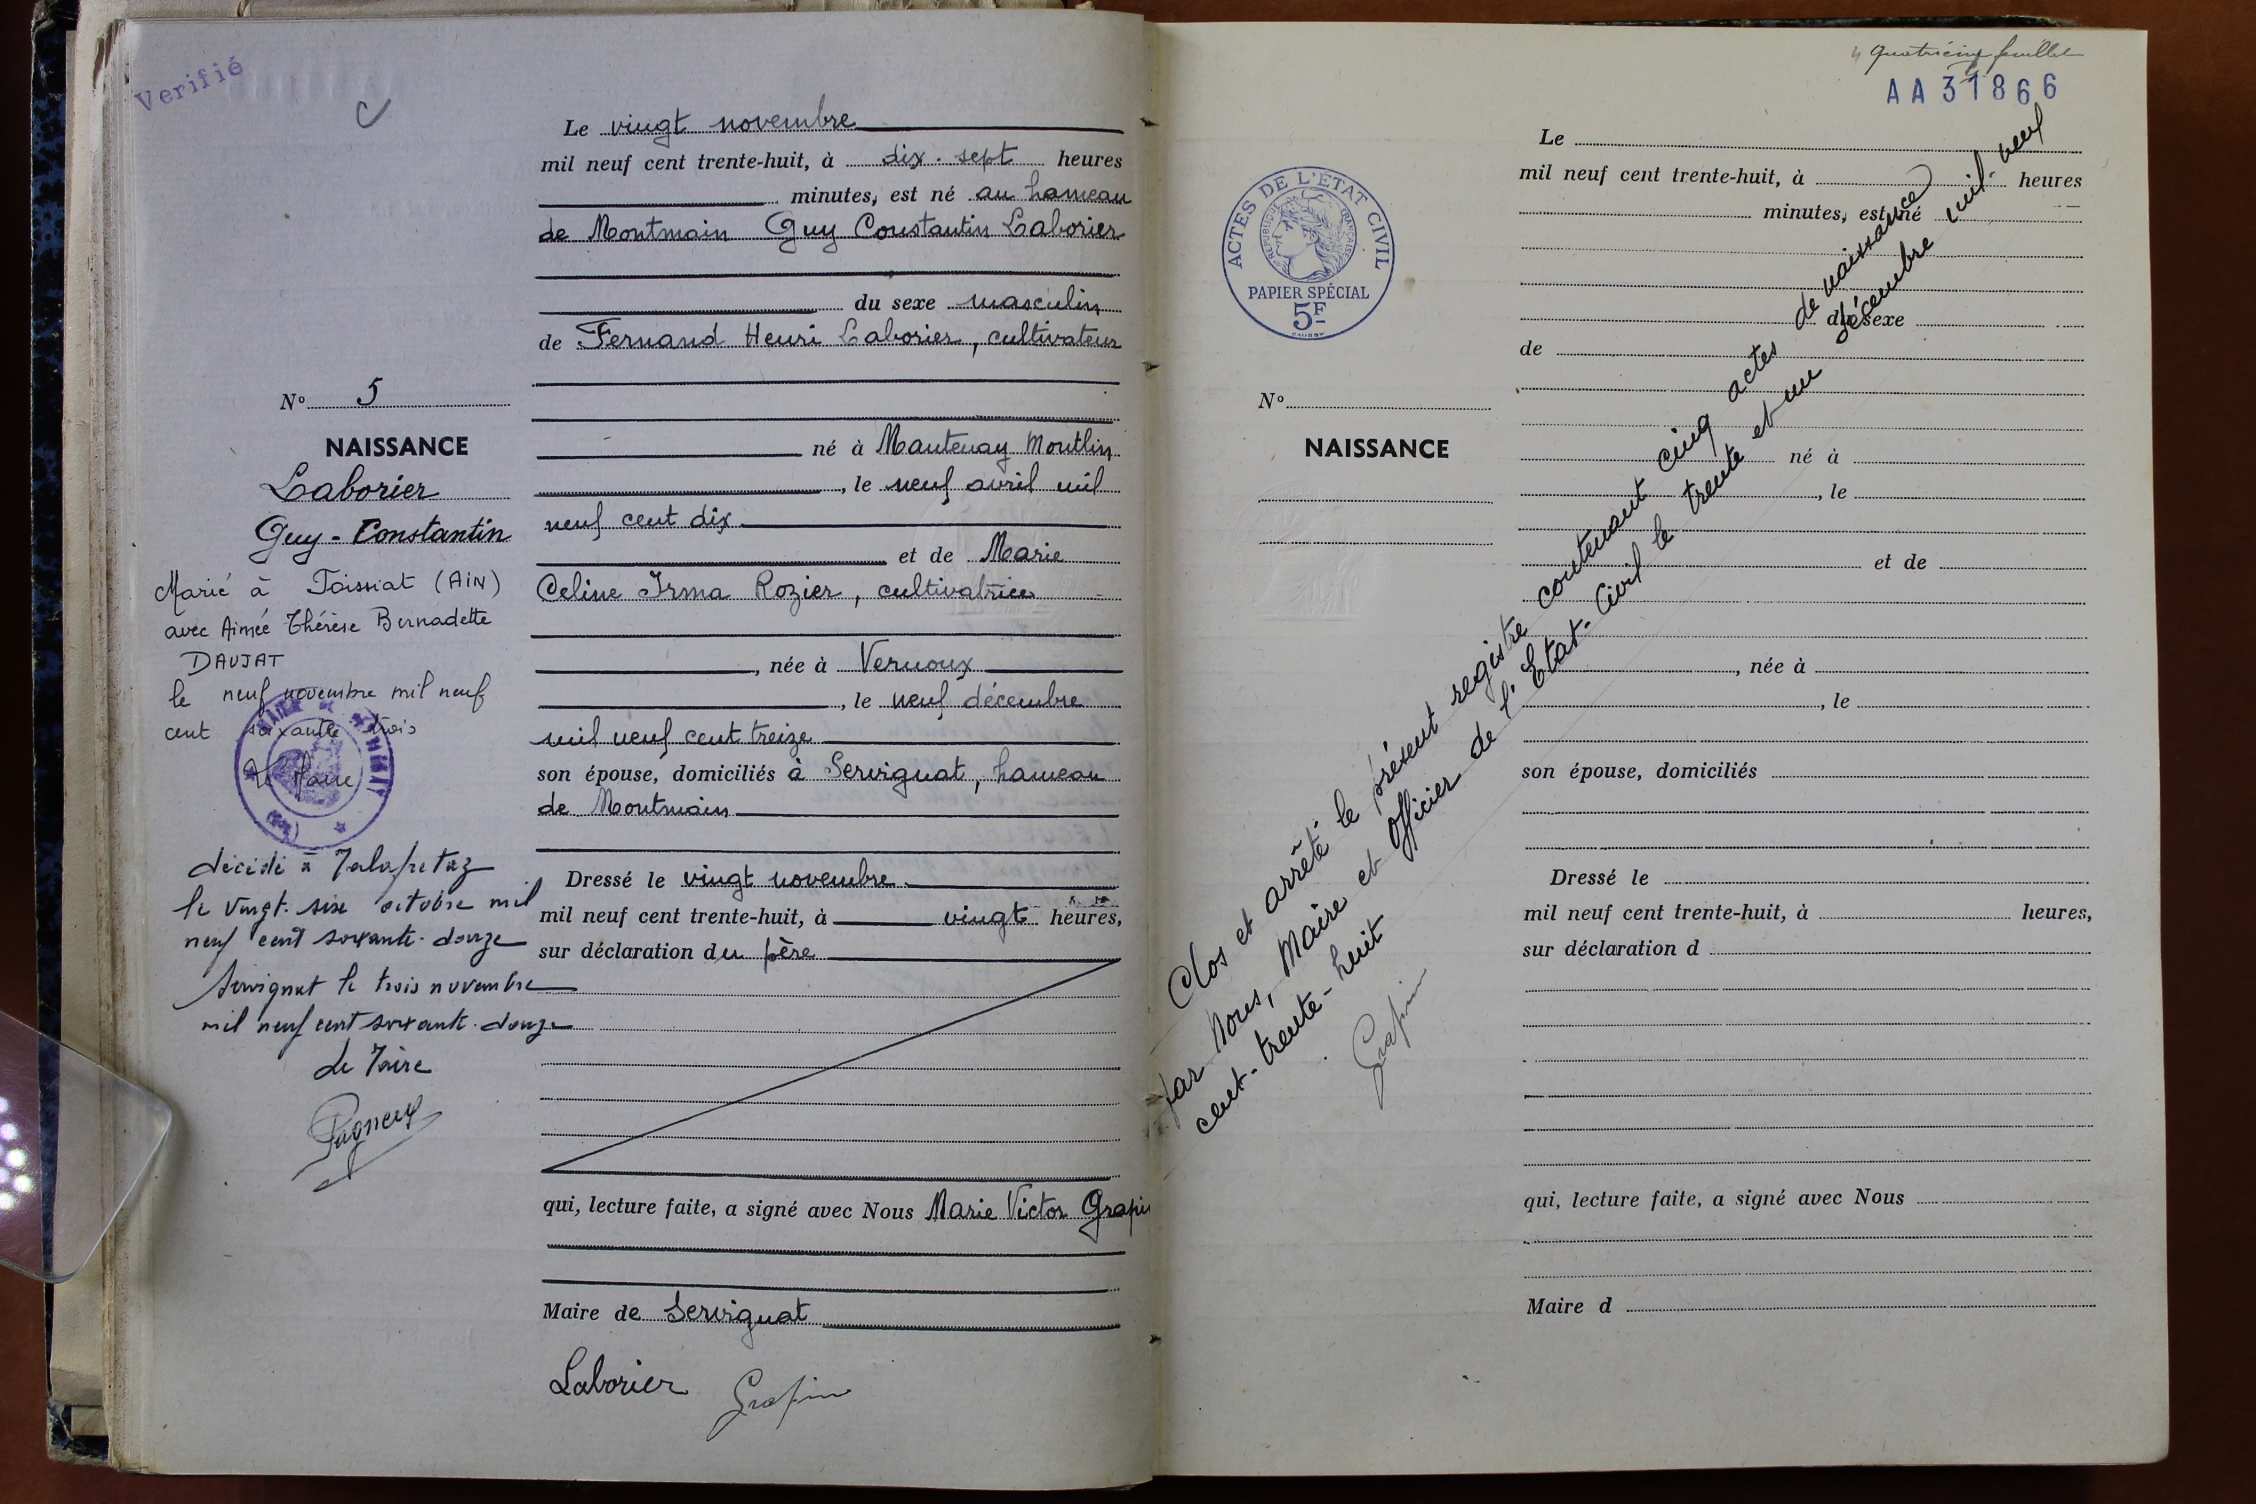 Verifié
Le vingt novembre
mil neuf cent trente-huit, à dix-sept heures
minutes, est né au hameau
de Montmain Guy Constantin Laborier
du sexe masculin
de Fernand Henri Laborier, cultivateur
né à Mantenay Montlin
, le neuf avril mil
neuf cent dix
et de Marie
Celine Irma Rozier, cultivatrice
, née à Vernoux
, le neuf décembre
mil neuf cent treize
son épouse, domiciliés à Servignat, hameau
de Montmain
Dressé le vingt novembre
mil neuf cent trente-huit, à vingt heures,
sur déclaration du père
qui, lecture faite, a signé avec Nous Marie Victor Grapin
Maire de Servignat
Laborier Grapin
N° 5
NAISSANCE
Laborier
Guy-Constantin
Marié à Foissiat (AIN)
avec Aimée Thérèse Bernadette
DAUJAT
le neuf novembre mil neuf
cent soixante trois
Le Maire
décédé à
le vingt-six octobre mil
neuf cent soixante-douze
Servignat le trois novembre
mil neuf cent soixante-douze
Le Maire
quatrième feuillet
AA 31866
ACTES DE L'ETAT CIVIL
RÉPUBLIQUE FRANÇAISE
PAPIER SPÉCIAL
5F
N°
NAISSANCE
Le
mil neuf cent trente-huit, à heures
minutes, est né
du sexe
de
né à
, le
et de
, née à
, le
son épouse, domiciliés
Dressé le
mil neuf cent trente-huit, à heures,
sur déclaration d
qui, lecture faite, a signé avec Nous
Maire d
Clos et arrêté le présent registre contenant cinq actes de naissance
par Nous, Maire et Officier de l'Etat-Civil le trente et un décembre mil-neuf
cent-trente-huit
Grapin